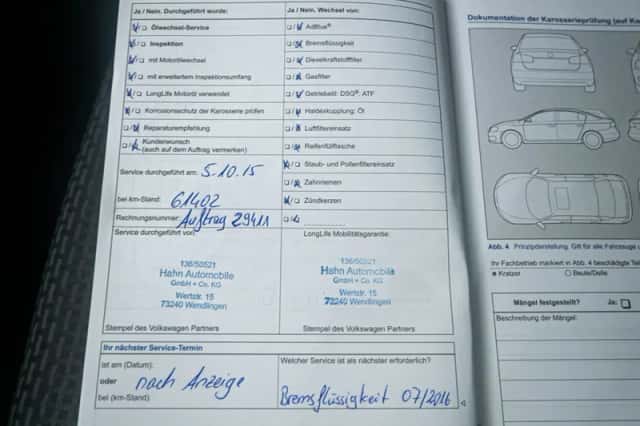 Ja / Nein. Durchgeführt wurde:
Ölwechsel-Service
Inspektion
mit Motorölwechsel
mit erweitertem Inspektionsumfang
LongLife Motoröl verwendet
Korrosionsschutz der Karosserie prüfen
Reparaturempfehlung
Kundenwunsch
(auch auf dem Auftrag vermerken)
Service durchgeführt am: 5.10.15
bei km-Stand: 61402
Rechnungsnummer: Auftrag 29411
Service durchgeführt von:
136/50521
Hahn Automobile
GmbH + Co. KG
Wertstr. 15
73240 Wendlingen
Stempel des Volkswagen Partners
Ja / Nein. Wechsel von:
AdBlue®
Bremsflüssigkeit
Dieselkraftstofffilter
Gasfilter
Getriebeöl: DSG®, ATF
Haldexkupplung: Öl
Luftfiltereinsatz
Reifenfüllflasche
Staub- und Pollenfiltereinsatz
Zahnriemen
Zündkerzen
LongLife Mobilitätsgarantie:
136/50521
Hahn Automobile
GmbH + Co. KG
Wertstr. 15
73240 Wendlingen
Stempel des Volkswagen Partners
Ihr nächster Service-Termin
ist am (Datum):
oder nach Anzeige
bei (km-Stand):
Welcher Service ist als nächster erforderlich?
Bremsflüssigkeit 07/2016
Dokumentation der Karosserieprüfung (auf
Abb. 4 Prinzipdarstellung. Gilt für alle Fahrzeuge
Ihr Fachbetrieb markiert in Abb. 4 beschädigte
Kratzer Beule/Delle
Mängel festgestellt? Ja:
Beschreibung der Mängel: